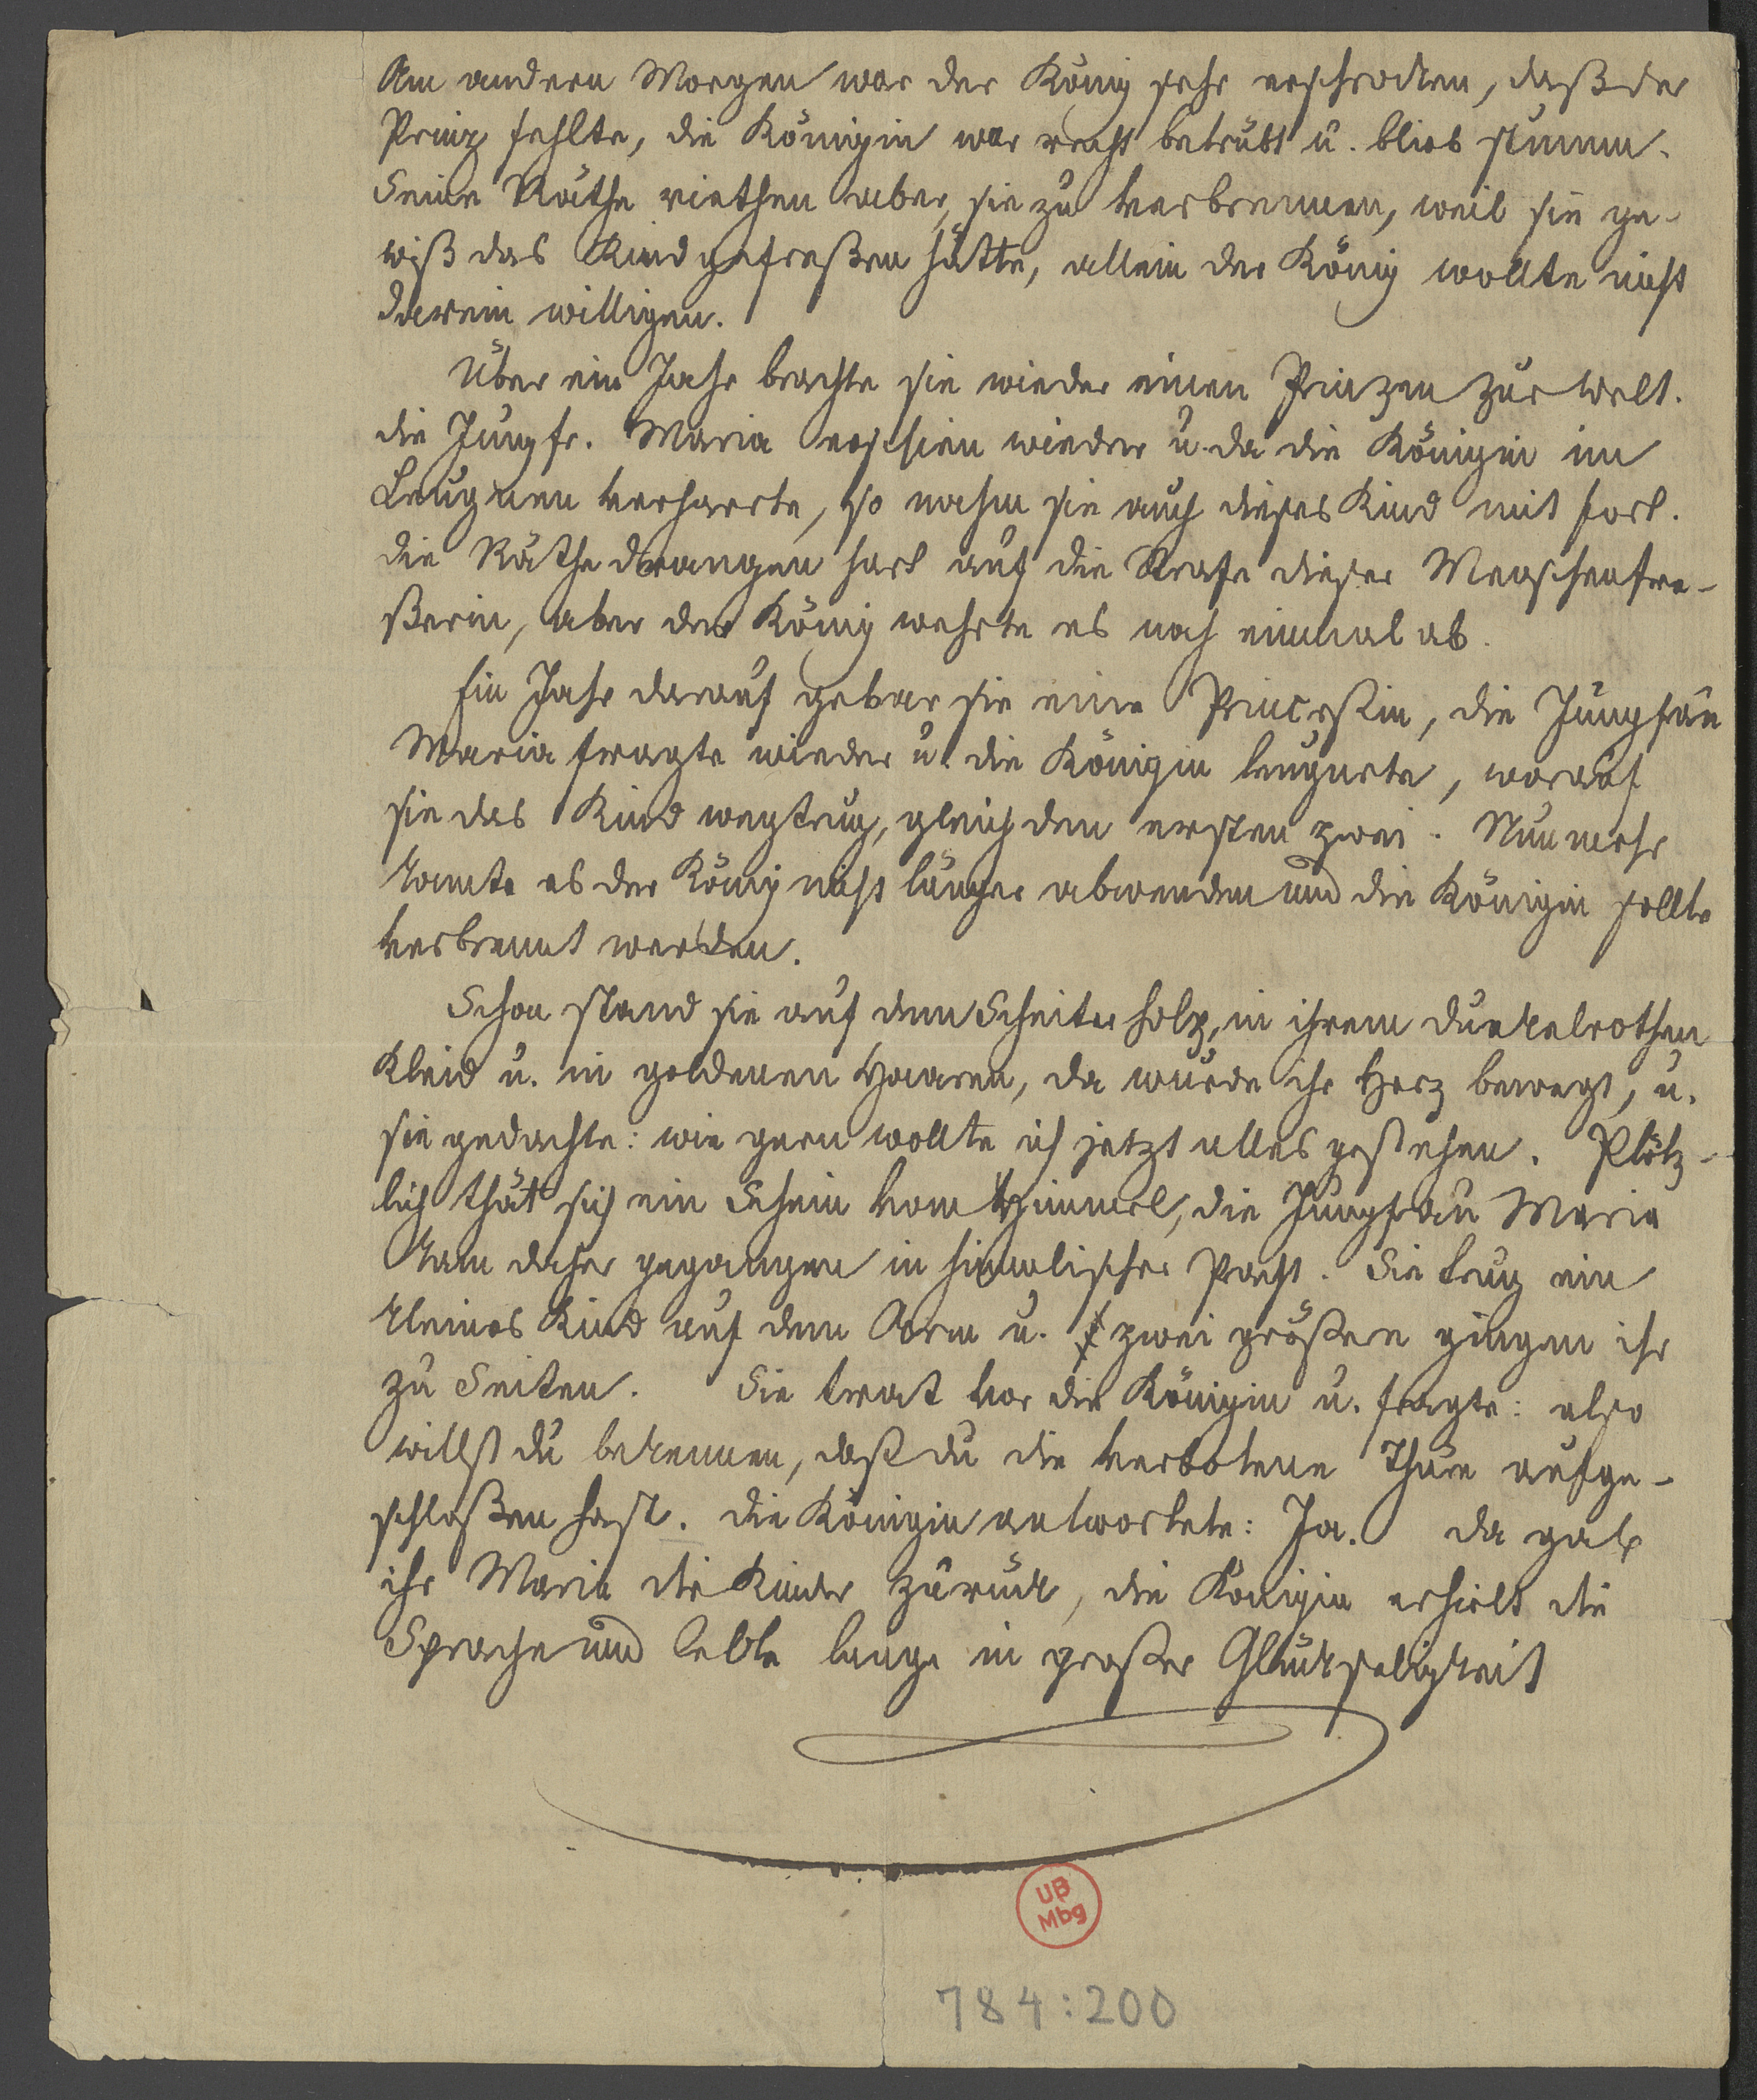 Am andern Morgen war der König sehr erschrocken, daß der
Prinz fehlte, die Königin war recht betrübt u. blieb stumm.
Seine Räthe riethen aber, sie zu verbrennen, weil sie ge-
wiß das Kind gefreßen hätte, allein der König wollte nicht
darein willigen.
Über ein Jahr brachte sie wieder einen Prinzen zur Welt.
die Jungfr. Maria erschien wieder u. da die Königin im
Leugnen verharrte, so nahm sie auch dieses Kind mit fort.
die Räthe drangen hart auf die Strafe dieser Menschenfre-
ßerin, aber der König wehrte es noch einmal ab.
Ein Jahr darauf gebar sie eine Princeßin, die Jungfrau
Maria fragte wieder u. die Königin leugnete, worauf
sie das Kind wegtrug, gleich den ersten zwei. Nunmehr
konnte es der König nicht länger abwenden und die Königin sollte
verbrennt werden.
Schon stand sie auf dem Scheiterholz, in ihrem dunkelrothen
Kleid u. in goldenen Haaren, da wurde ihr Herz bewegt, u.
sie gedachte: wie gern wollte ich jetzt alles gestehen. Plötz-
lich thät sich ein Schein vom Himmel, die Jungfrau Maria
kam daher gegangen in himmlischer Pracht. Sie trug ein
kleines Kind auf dem Arm u. zwei größere gingen ihr
zu Seiten. Sie trat vor die Königin u. fragte: also
willst du bekennen, daß du die verbotene Thüre aufge-
schloßen hast. die Königin antwortete: Ja. da gab
ihr Maria die Kinder zurück, die Königin erhielt die
Sprache und lebte lange in großer Glückseligkeit
UB
Mbg
784:200